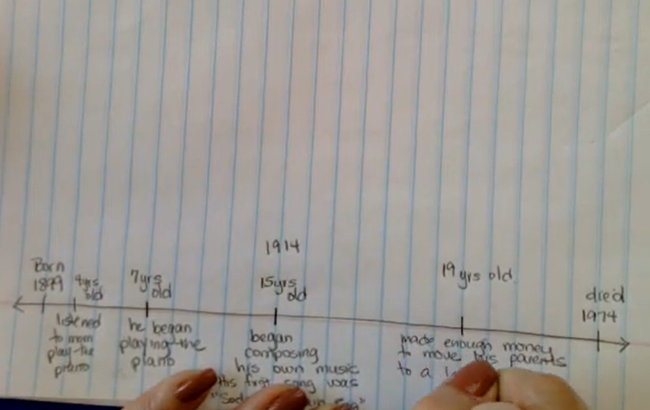 Born
1899
4yrs
old
listened
to mom
play the
piano
7yrs
old
he began
playing the
piano
1914
15yrs
old
began
composing
his own music
His first song was
19 yrs old
made enough money
to move his parents
to a
died
1974